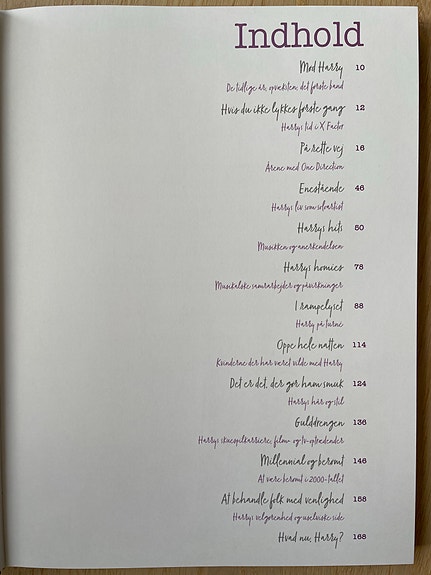 Indhold
Mød Harry 10
De tidlige år, opvæksten, det første band
Hvis du ikke lykkes første gang 12
Harrys tid i X Factor
På rette vej 16
Årene med One Direction
Enestående 46
Harrys liv som soloartist
Harrys hits 50
Musikken og anerkendelsen
Harrys homies 78
Musikalske samarbejder og påvirkninger
I rampelyset 88
Harry på turné
Oppe hele natten 114
Kvinderne der har været vilde med Harry
Det er det, der gør ham smuk 124
Harrys hår og stil
Gulddrengen 136
Harrys skuespilkarriere, film- og tv-optrædender
Millennial og berømt 146
At være berømt i 2000-tallet
At behandle folk med venlighed 158
Harrys velgørenhed og uselviske side
Hvad nu, Harry? 168